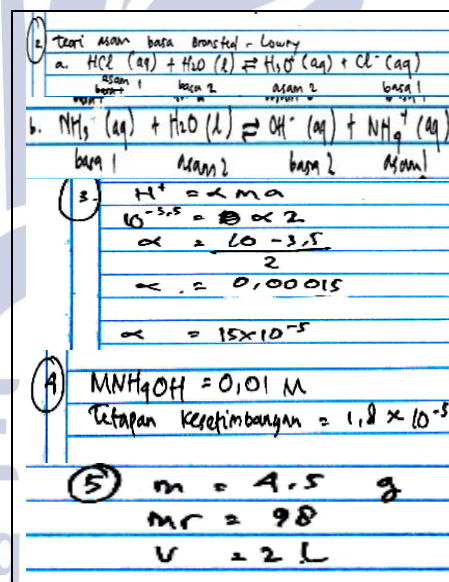 2 teori asam basa bronsted - Lowry
a. HCl (aq) + H2O (l) ⇌ H3O⁺ (aq) + Cl⁻ (aq)
asam 1 basa 2 asam 2 basa 1
b. NH3 (aq) + H2O (l) ⇌ OH⁻ (aq) + NH4⁺ (aq)
basa 1 asam 2 basa 2 asam 1
3. H⁺ = α ma
10⁻³,⁵ = α 2
α = 10 -3,5
2
α = 0,00015
α = 15x10⁻⁵
4 MNH4OH = 0,01 M
Tetapan kesetimbangan = 1,8 x 10⁻⁵
5 m = 4.5 g
mr = 98
V = 2 L